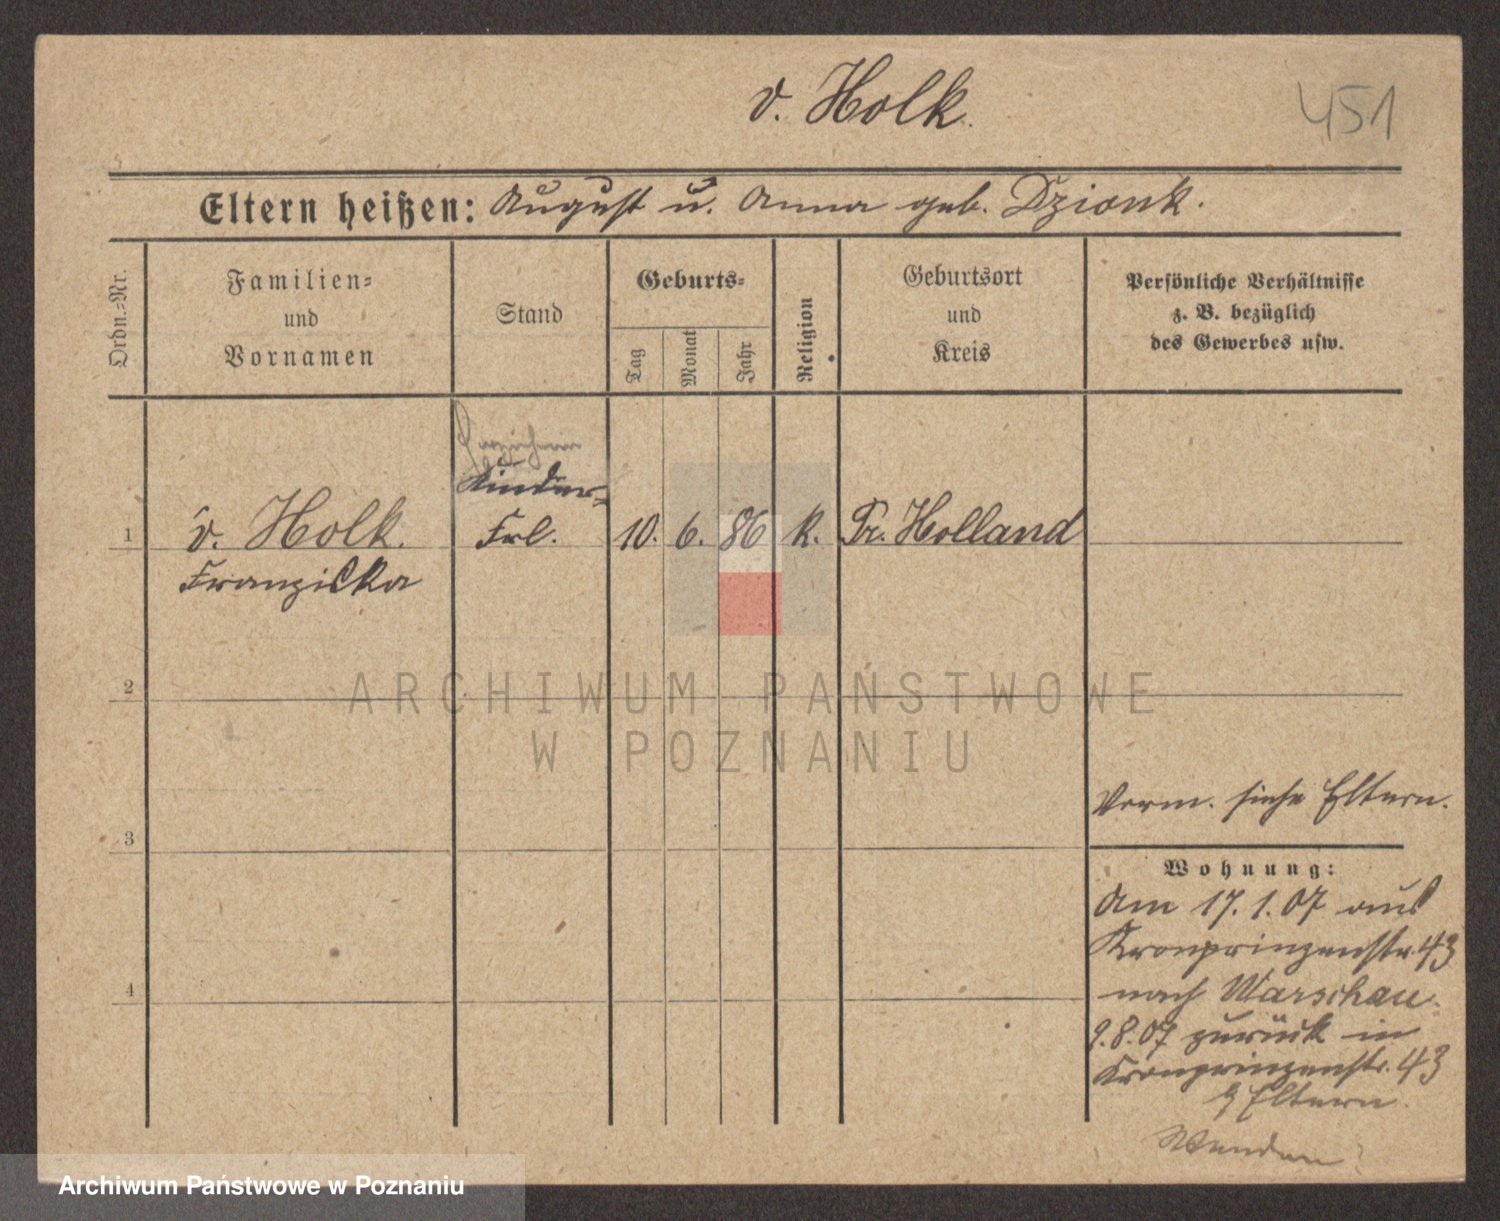 v. Holk.
451
Eltern heißen: August u. Anna geb. Dzionk.
Ordn.-Nr.
Familien-
und
Vornamen
Stand
Geburts-
Tag
Monat
Jahr
Religion
Geburtsort
und
Kreis
Persönliche Verhältnisse
z. B. bezüglich
des Gewerbes usw.
Erzieherin
Kinder-
1 v. Holk. Frl. 10. 6. 86 k. Pr. Holland
Franziska
2
ARCHIWUM PAŃSTWOWE
W POZNANIU
Verm. siehe Eltern.
3
Wohnung:
Am 17. 1. 07 aus
Kronprinzenstr. 43
4
nach Warschau.
9.8.07 zurück in
Kronprinzenstr. 43
b/ Eltern.
Wenden!
Archiwum Państwowe w Poznaniu